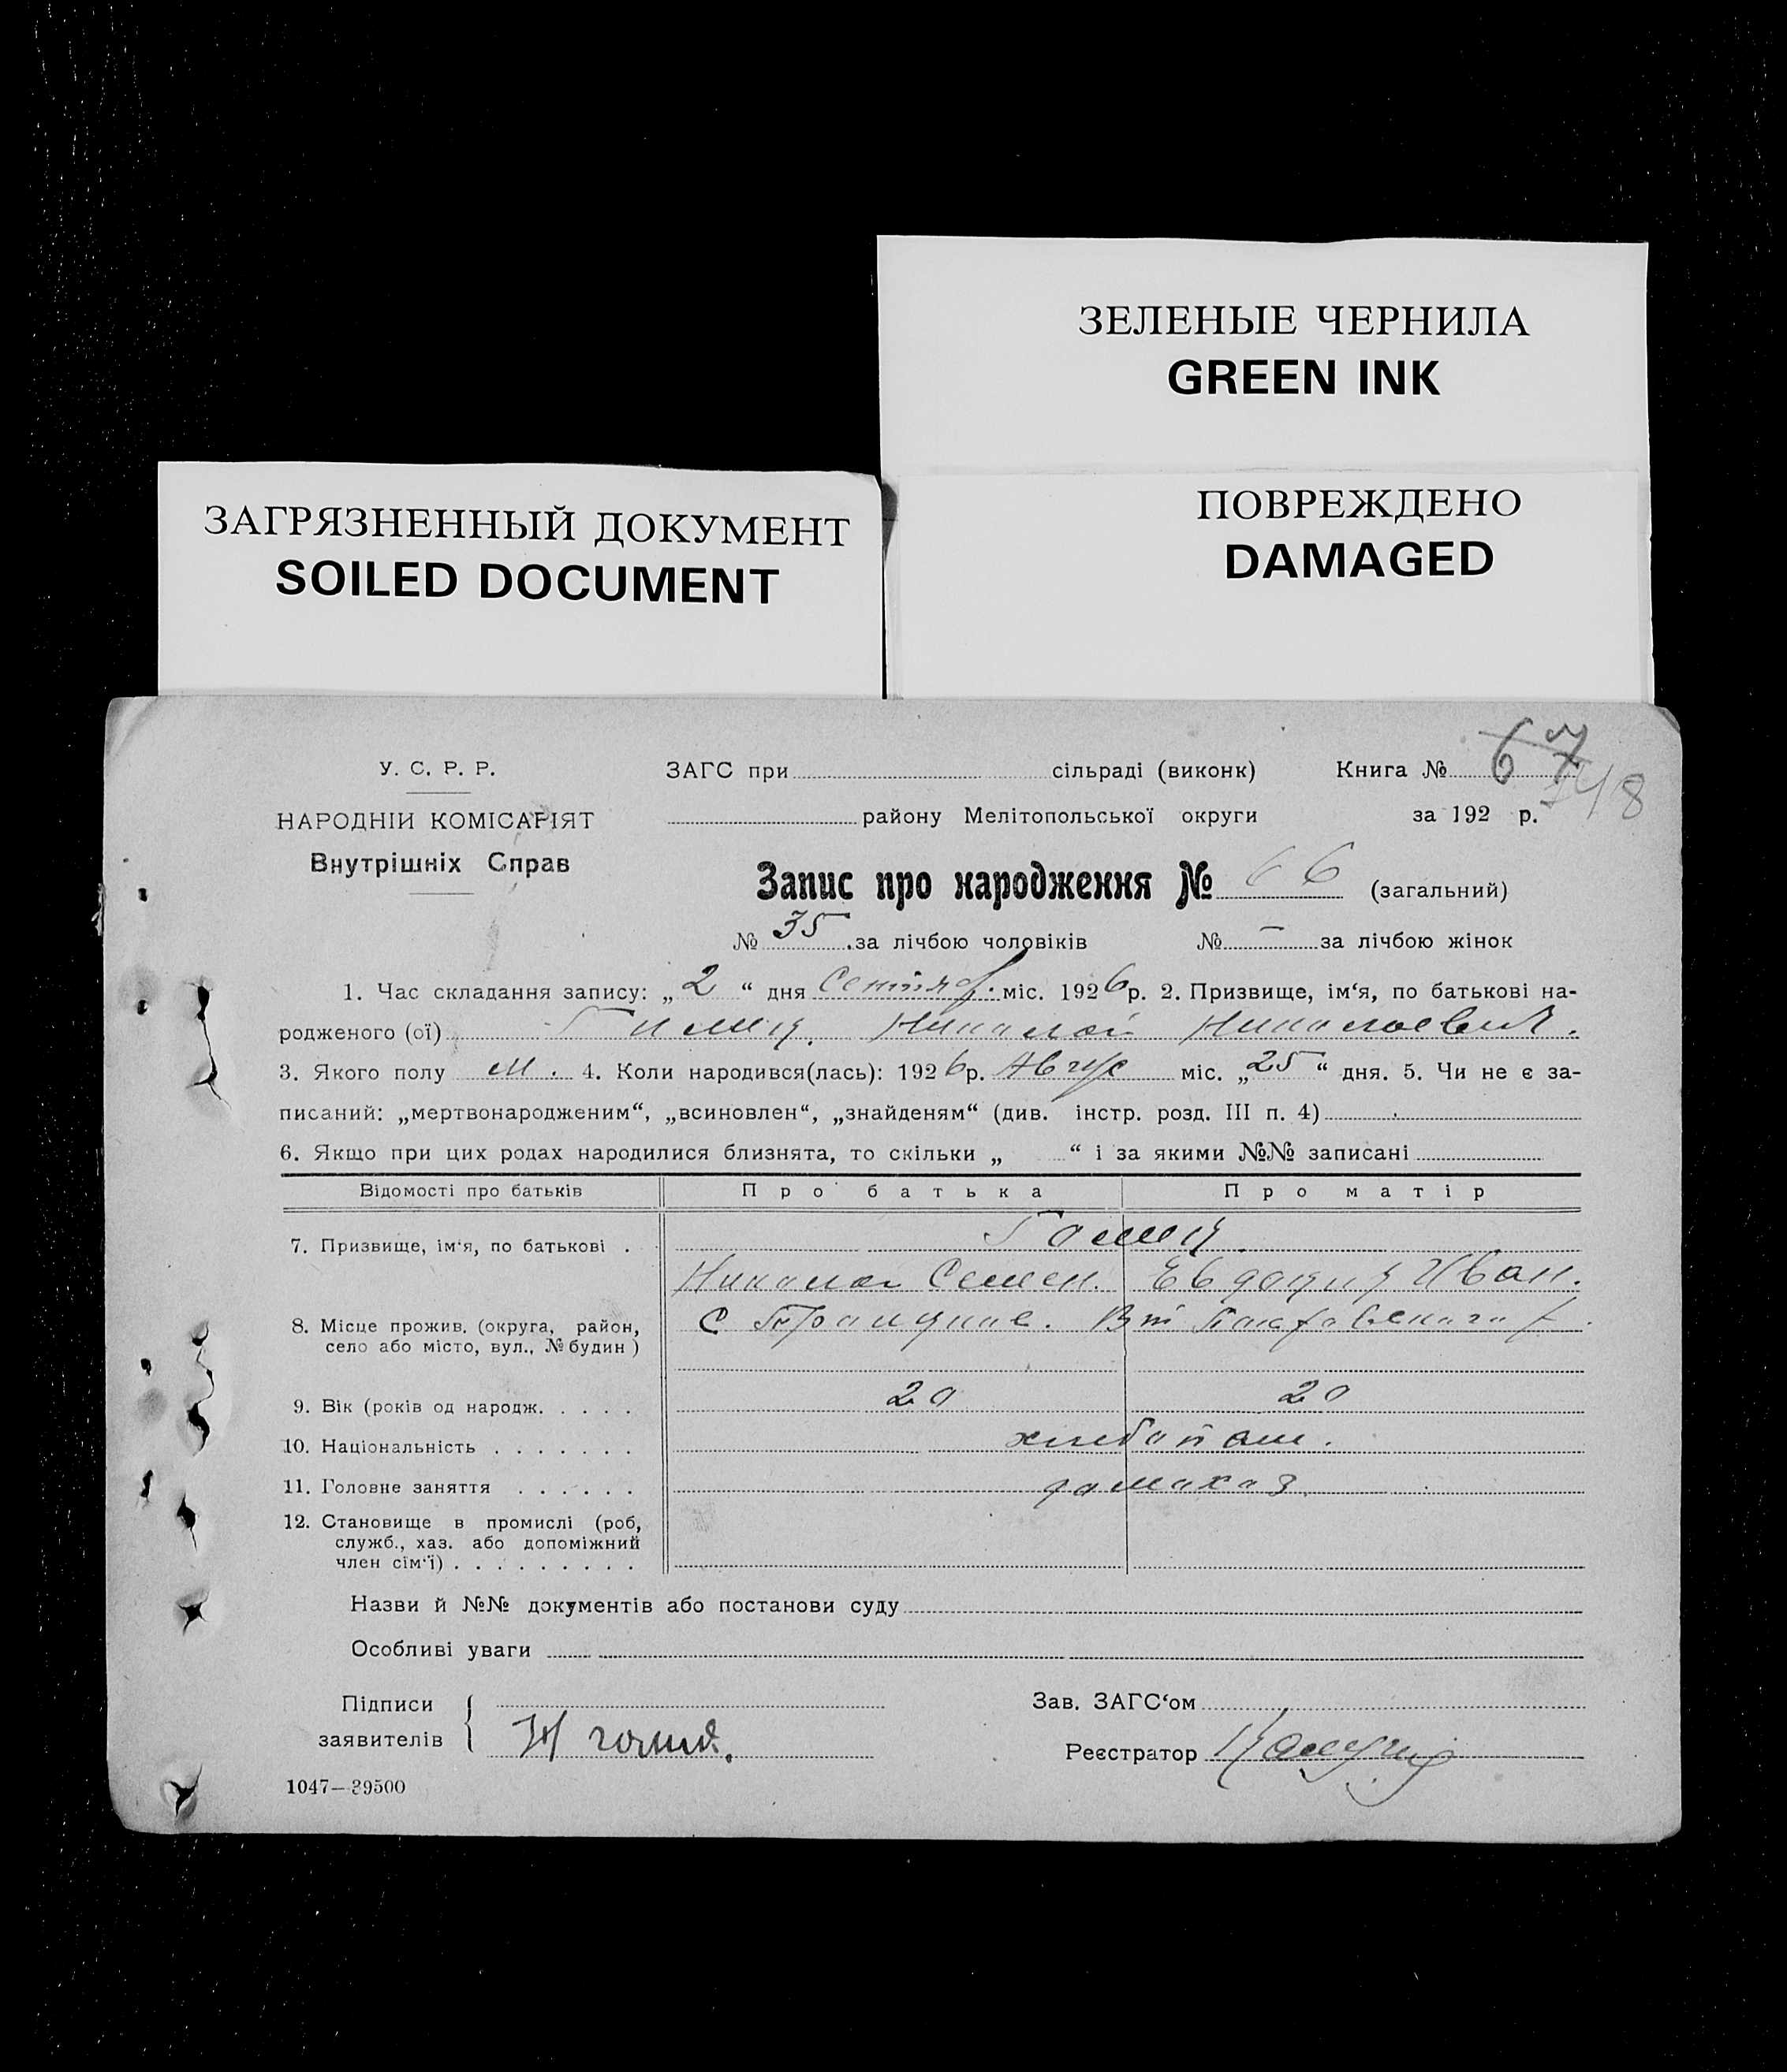 ЗЕЛЕНЫЕ ЧЕРНИЛА
GREEN INK
ЗАГРЯЗНЕННЫЙ ДОКУМЕНТ
SOILED DOCUMENT
ПОВРЕЖДЕНО
DAMAGED
У. С. Р. Р.
НАРОДНІЙ КОМІСАРІЯТ
Внутрішніх Справ
ЗАГС при сільраді (виконк) Книга № 67
району Мелітопольської округи за 192 р.
Запис про народження № 66 (загальний)
№ 35 за лічбою чоловіків № — за лічбою жінок
1. Час складання запису: „2“ дня Сентяб. міс. 1926 р. 2. Призвище, ім‘я, по батькові на-
родженого (ої) Николай Николаевич.
3. Якого полу м. 4. Коли народився(лась): 1926 р. Август міс. „25“ дня. 5. Чи не є за-
писаний: „мертвонародженим“, „всиновлен“, „знайденям“ (див. інстр. розд. III п. 4)
6. Якщо при цих родах народилися близнята, то скільки „ “ і за якими №№ записані
Відомості про батьків Про батька Про матір
7. Призвище, ім‘я, по батькові . Гомия
Николай Семен. Евдокия Иван.
8. Місце прожив. (округа, район,
село або місто, вул., № будин ) С
9. Вік (років од народж. . . . . 20 20
10. Національність . . . . . . .
11. Головне заняття . . . . . . домахоз.
12. Становище в промислі (роб,
служб., хаз. або допоміжний
член сім‘ї) . . . . . . . . .
Назви й №№ документів або постанови суду
Особливі уваги
Підписи
заявителів
Зав. ЗАГС‘ом
Реєстратор
1047—39500